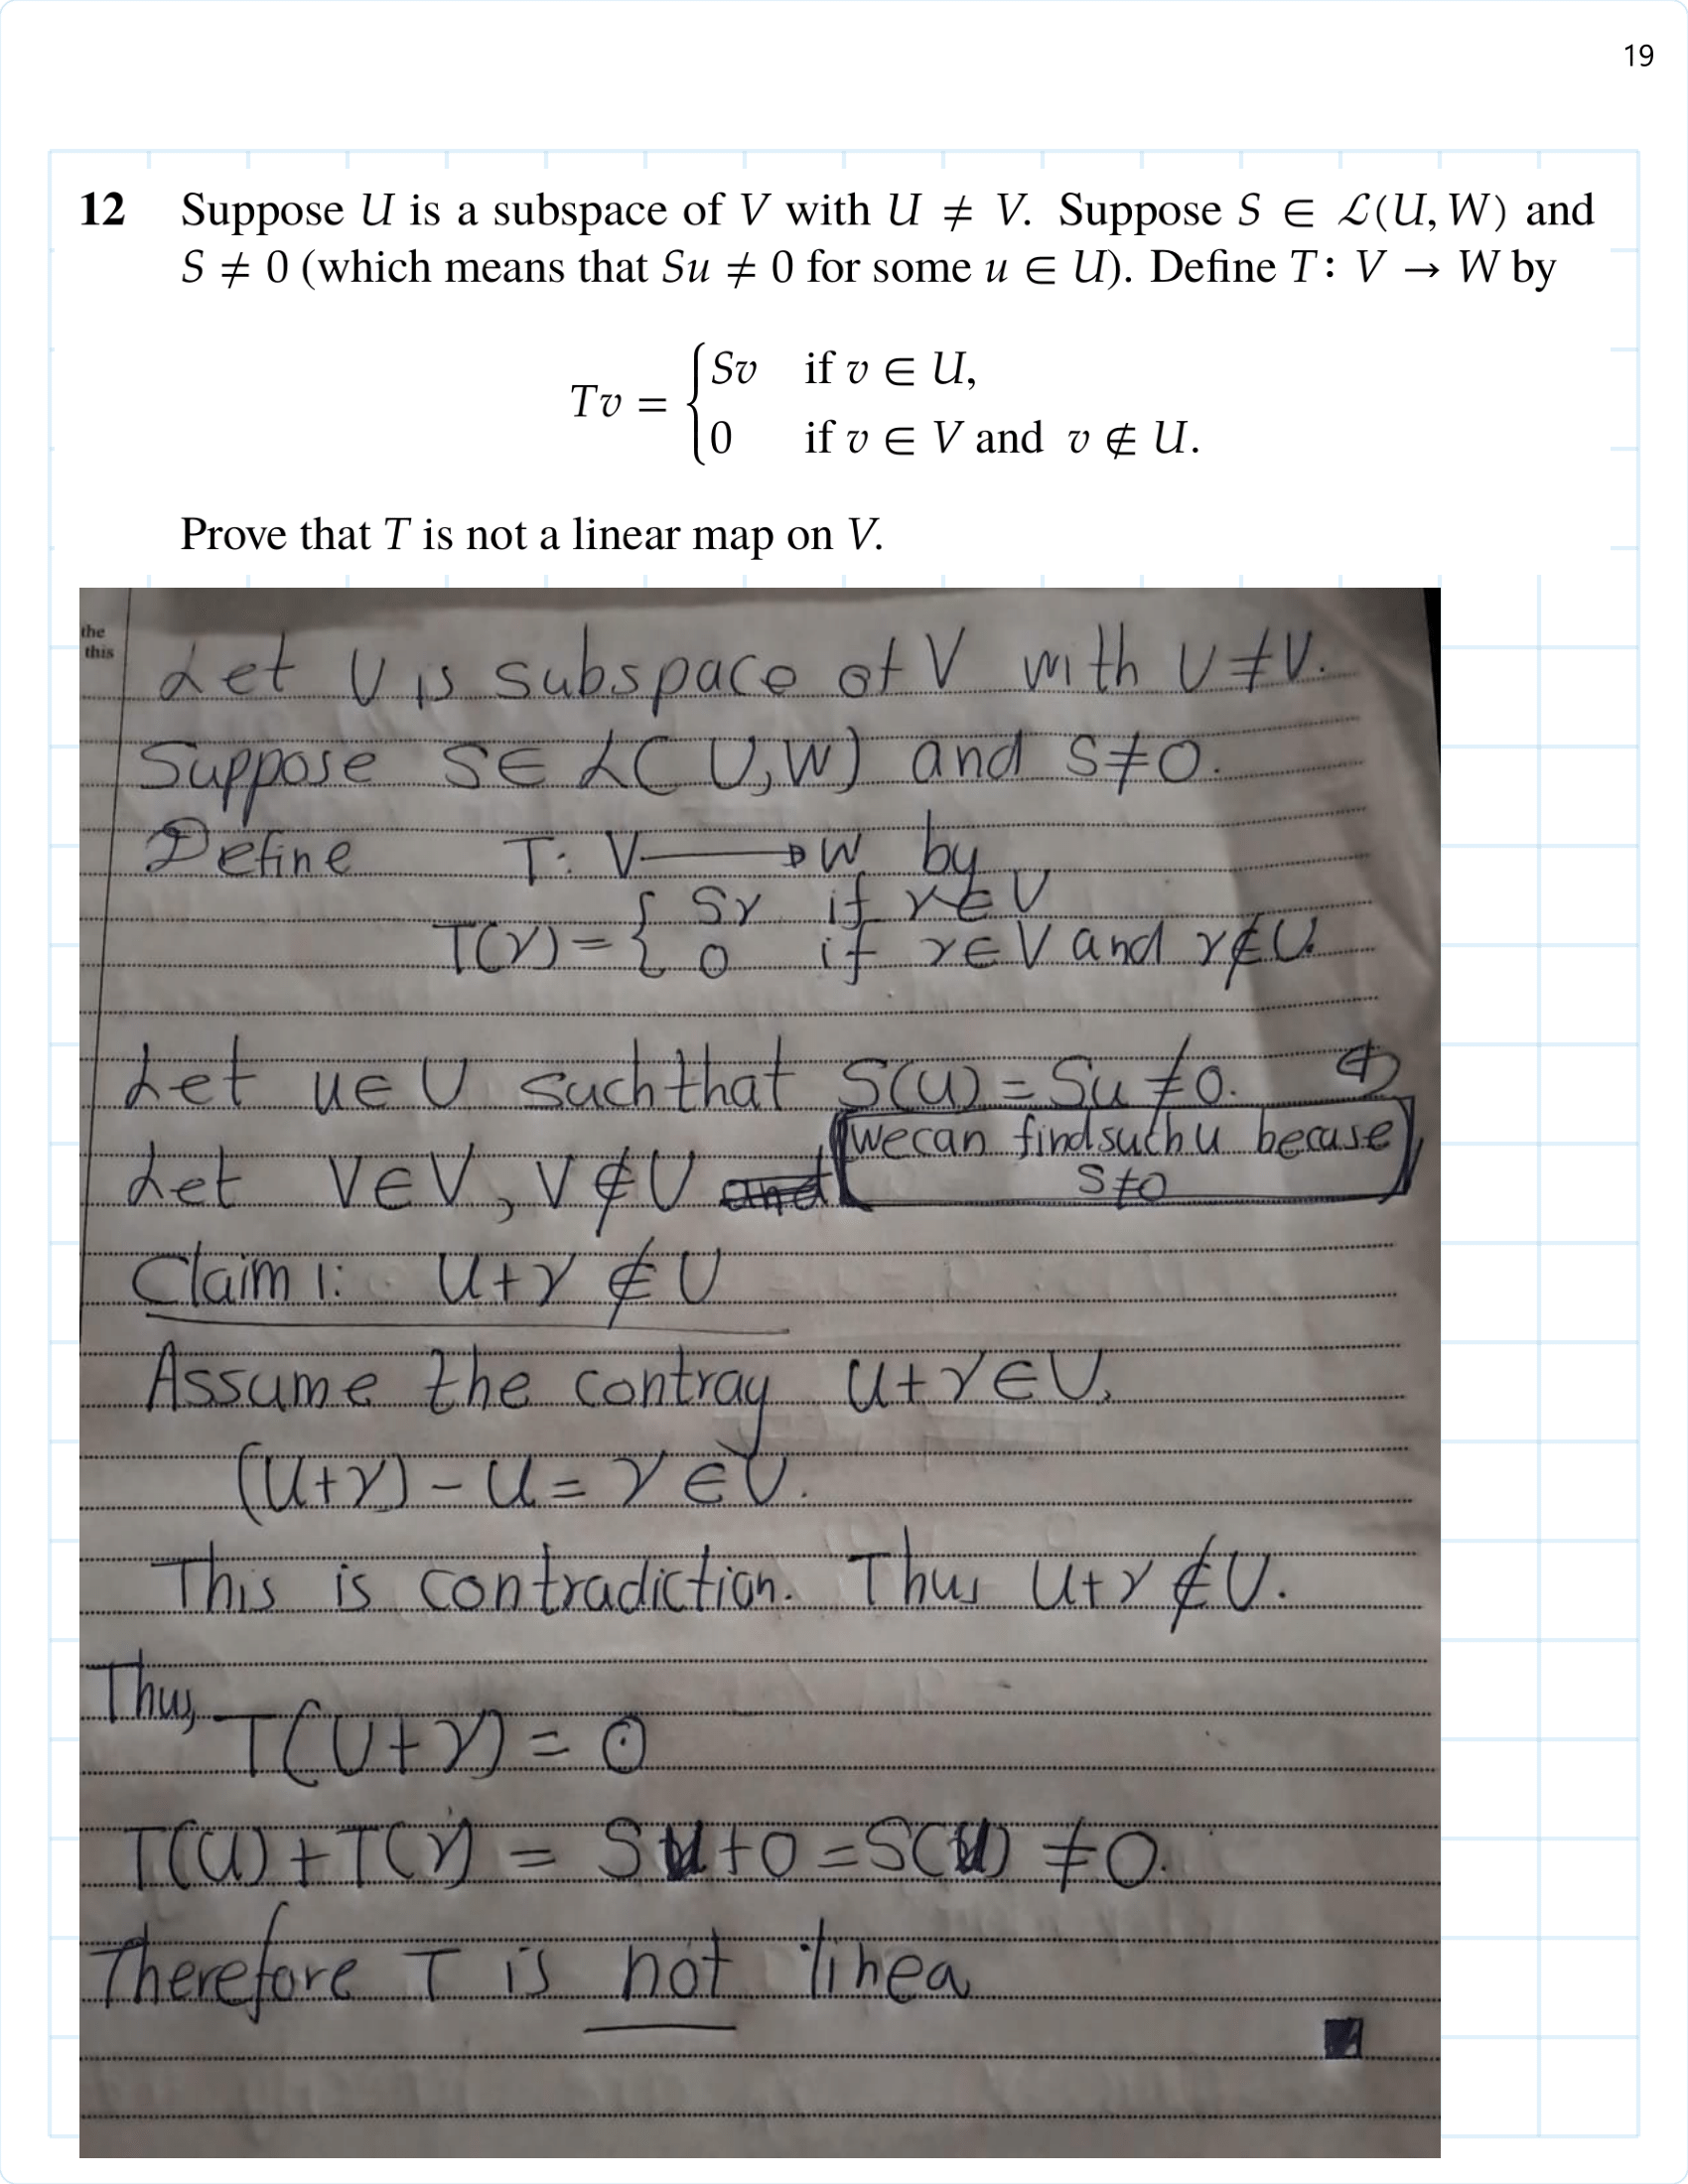 19
12 Suppose U is a subspace of V with U ≠ V. Suppose S ∈ ℒ(U, W) and
S ≠ 0 (which means that Su ≠ 0 for some u ∈ U). Define T: V → W by
Tv = { Sv if v ∈ U,
0 if v ∈ V and v ∉ U.
Prove that T is not a linear map on V.
the
this
Let U is subspace of V with U ≠ V.
Suppose S ∈ L(U,W) and S ≠ 0.
Define T: V → W by
T(v) = { Sv if v ∈ U
0 if v ∈ V and v ∉ U.
Let u ∈ U such that S(u) = Su ≠ 0.
we can find such u becuse
S ≠ 0
Let v ∈ V, v ∉ U and
Claim 1: u + v ∉ U
Assume the contray u + v ∈ U.
(u + v) - u = v ∈ U.
This is contradiction. Thus u + v ∉ U.
Thus,
T(u + v) = 0
T(u) + T(v) = Su + 0 = S(u) ≠ 0.
Therefore T is not linea